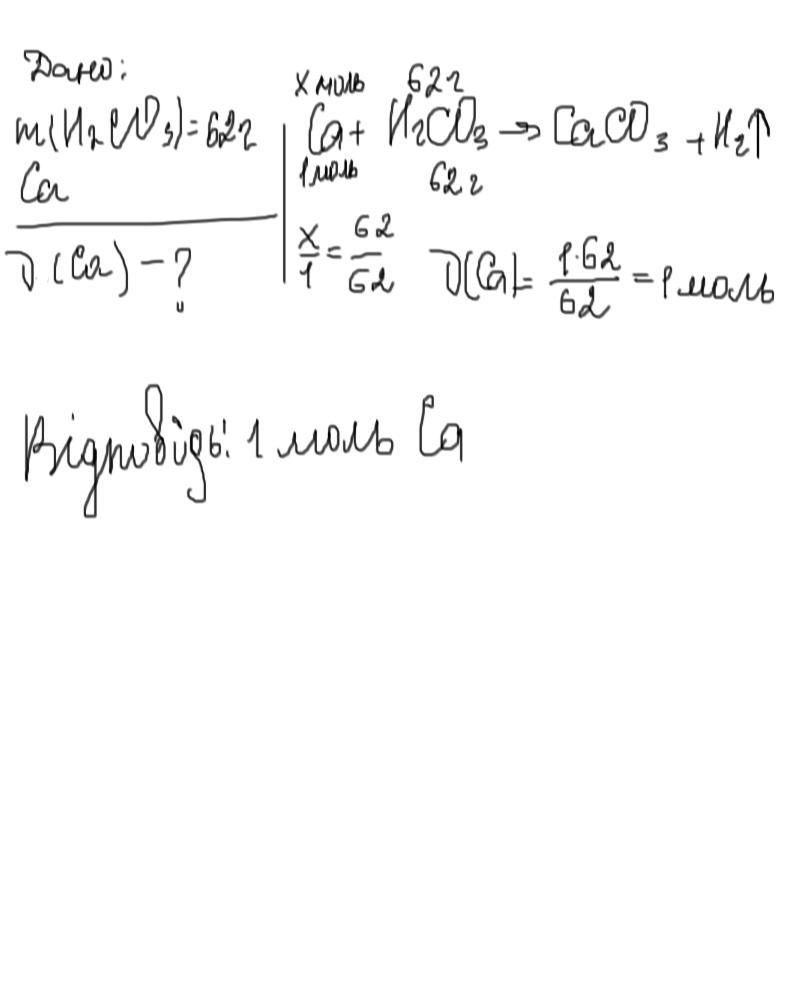 Дано:
m(H₂CO₃)=62г
Ca
ν(Ca)-?
x моль 62г
Ca+ H₂CO₃ → CaCO₃ +H₂↑
1моль 62г
x/1 = 62/62 ν(Ca)= 1·62/62 = 1моль
Відповідь: 1 моль Ca